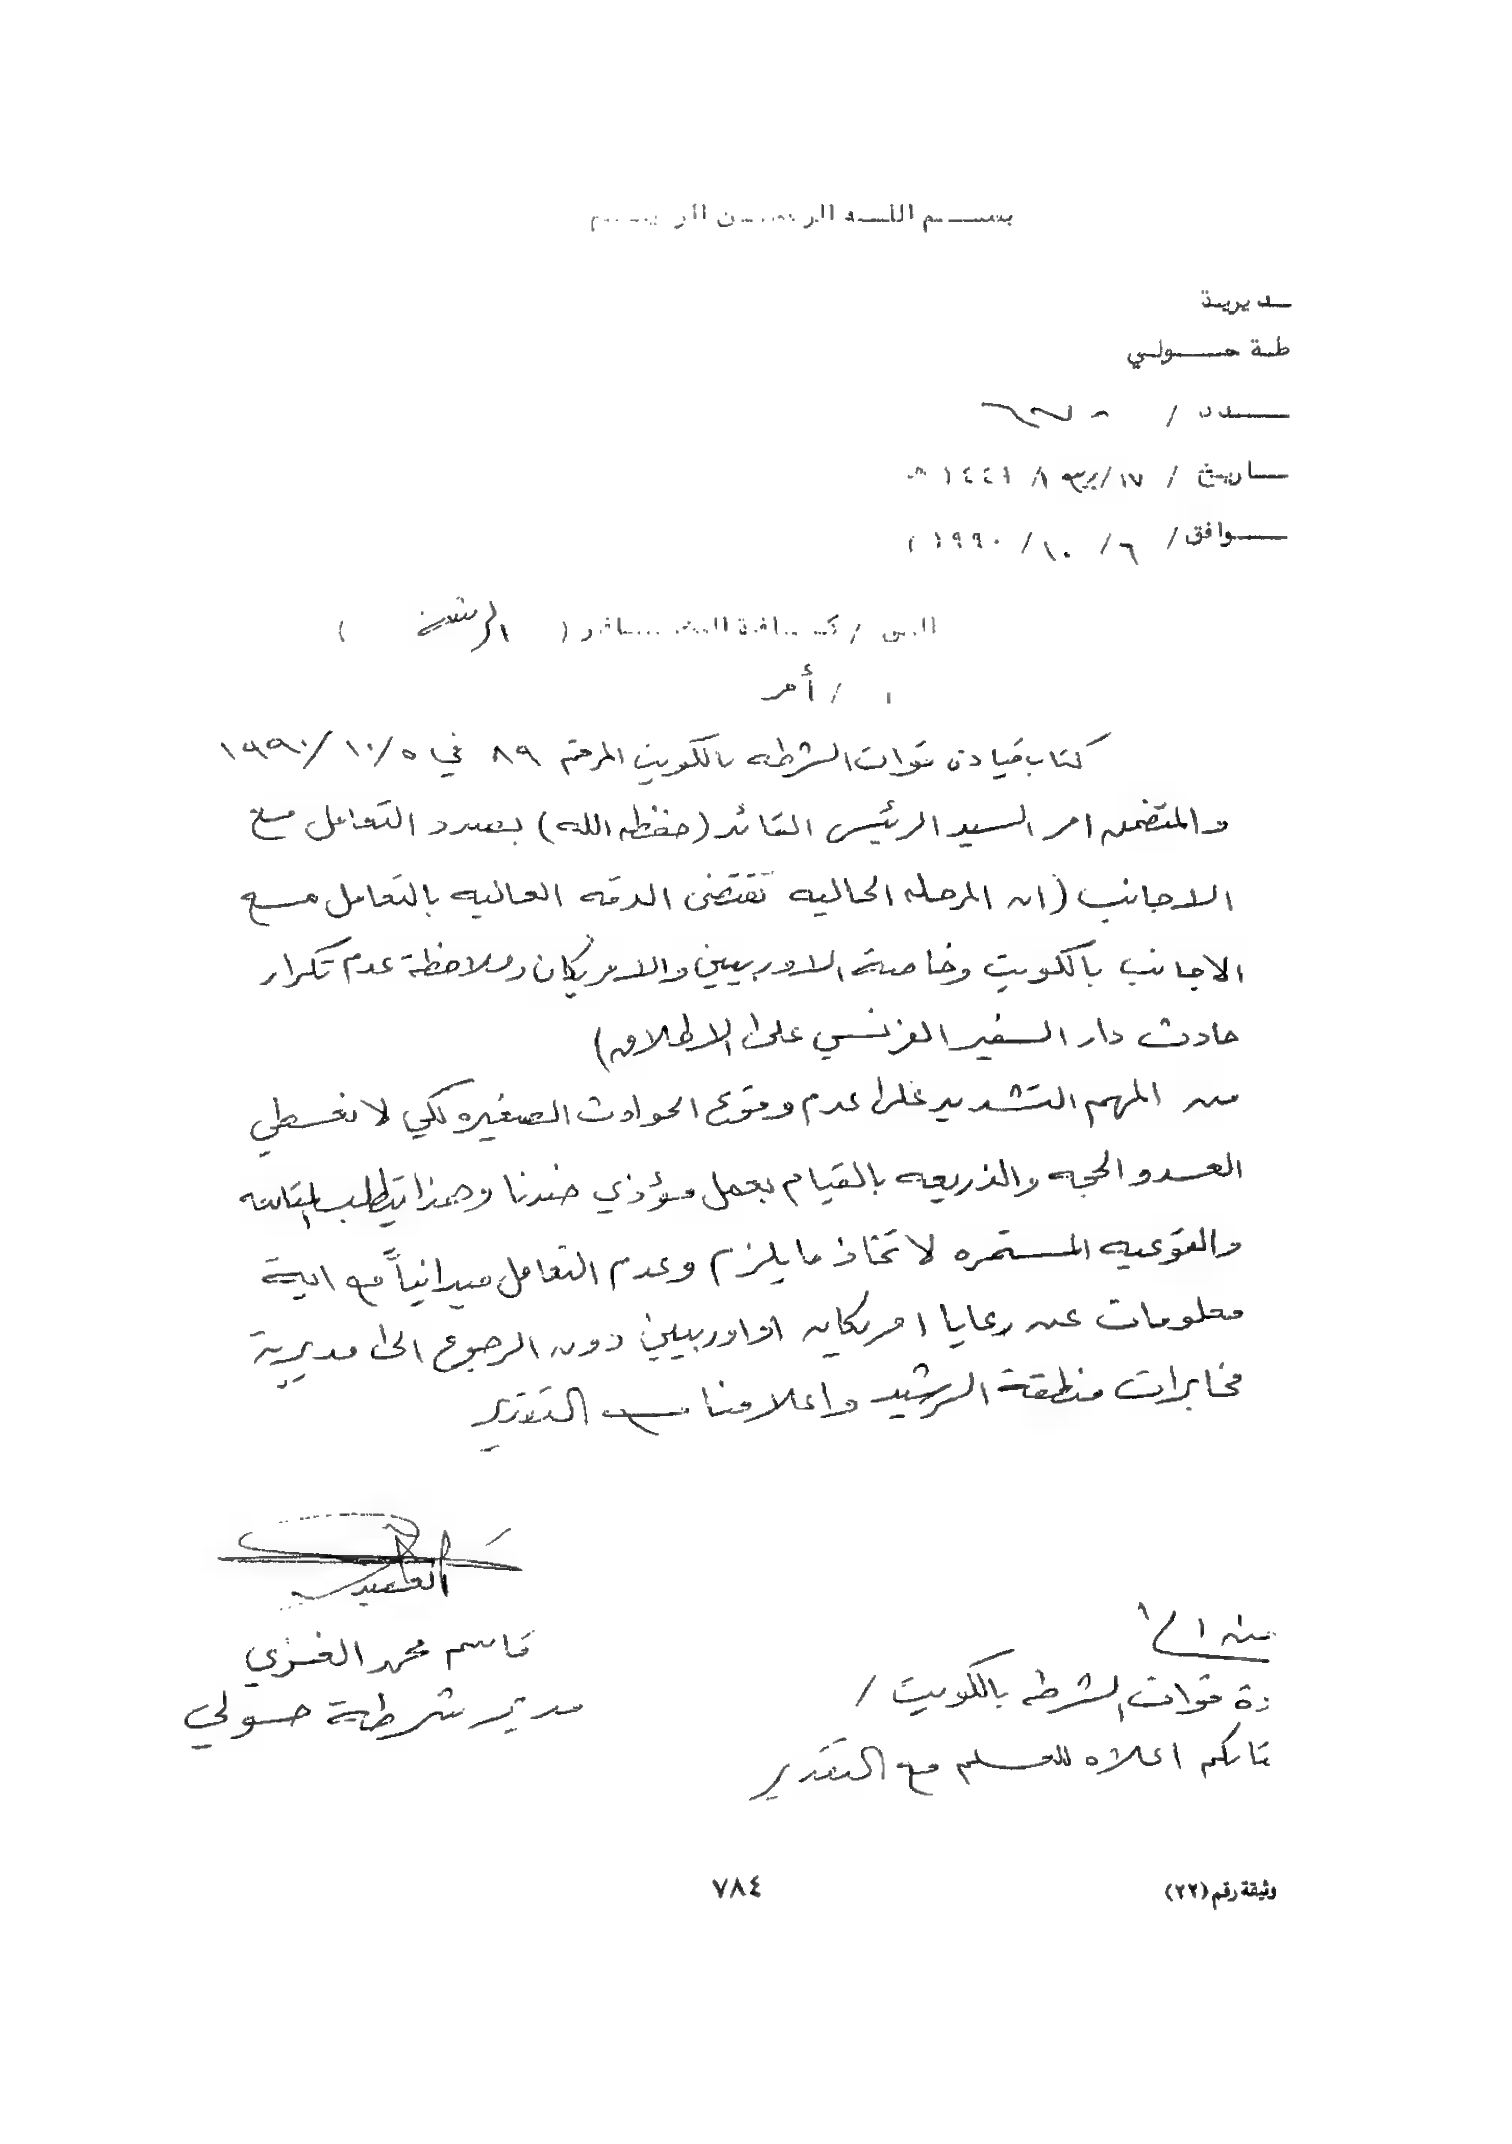 بسم الله الرحمن الرحيم
ـديرية
طة حولي
ـدد /
ـاريخ / ١٧/
ـوافق / ٦ / ١٠ / ١٩٩٠ م
الى / كافة ( )
/ أمر
كتاب قيادة قوات الشرطه بالكويت المرقم ٨٩ في ٥/١٠/١٩٩٠
والمتضمن امر السيد الرئيس القائد (حفظه الله) بصدد التعامل مع
الاجانب (ان المرحله الحاليه تقتضي الدقه العاليه بالتعامل مع
الاجانب بالكويت وخاصة الاوربيين والامريكان وملاحظة عدم تكرار
حادث دار السفير الفرنسي على الاطلاق)
من المهم التشديد على عدم وقوع الحوادث الصغيره لكي لا نعطي
العدو الحجه والذريعه بالقيام بعمل مؤذي ضدنا وهذا يتطلب المتابعه
والتوعيه المستمره لاتخاذ مايلزم وعدم التعامل ميدانياً مع اية
معلومات عن رعايا امريكان او اوربيين دون الرجوع الى مديرية
مخابرات منطقة الرشيد واعلامنا مع التقدير
العميد
قاسم محمد الغزي
مدير شرطة حولي
منه الى /
دة قوات الشرطه بالكويت /
تابكم اعلاه للعلم مع التقدير
وثيقة رقم (٢٢)
٧٨٤